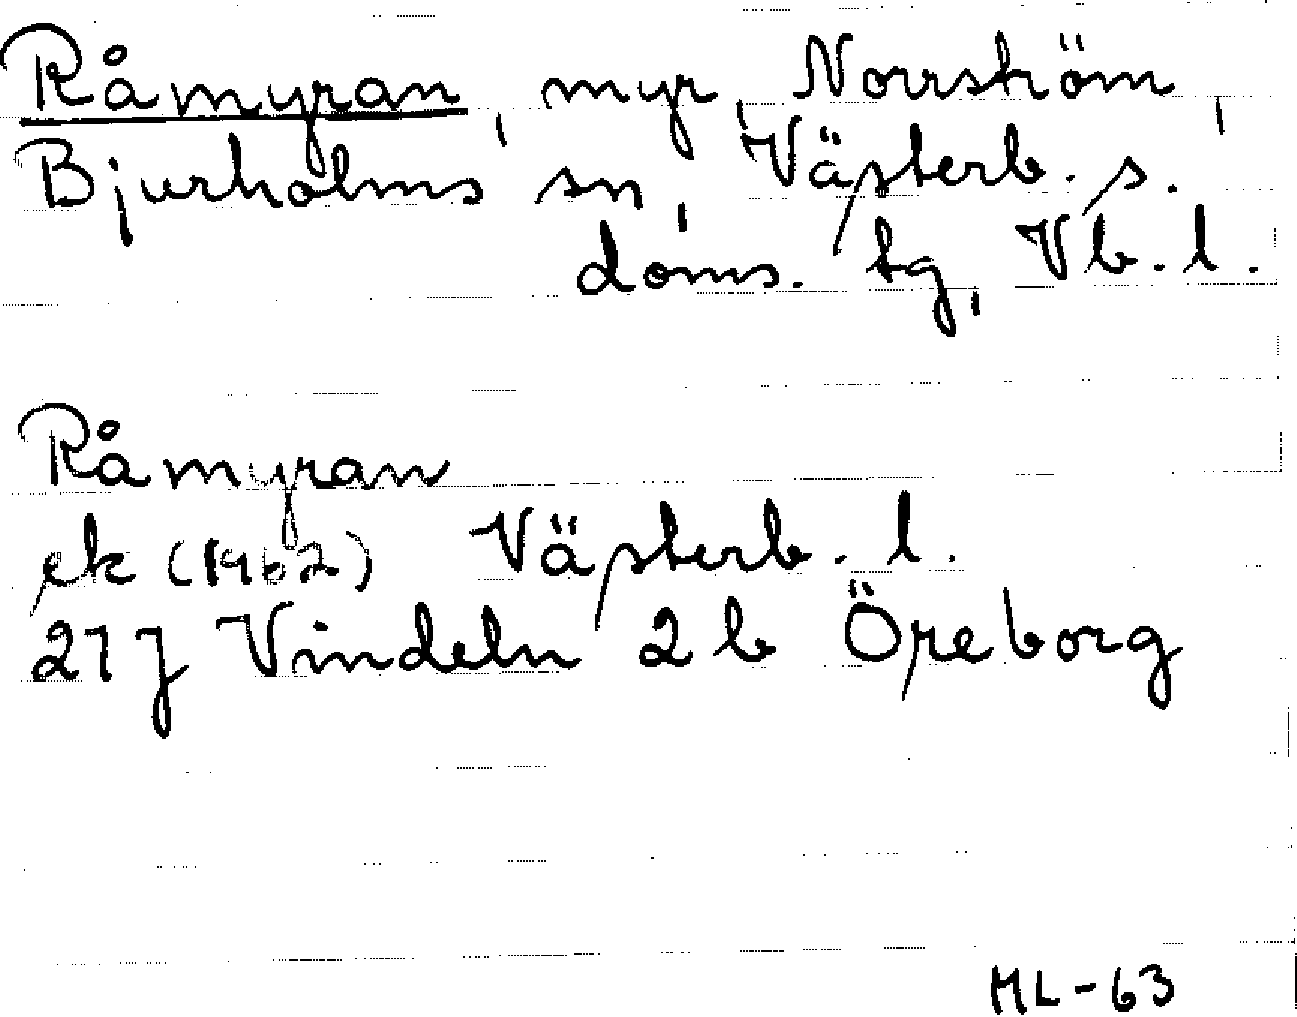 Råmyran, myr, Norrström,
Bjurholms sn, Västerb. s.
doms. tg, Vb. l.
Råmyran
ek (1962) Västerb. l.
21 J Vindeln 2 b Öreborg
ML-63